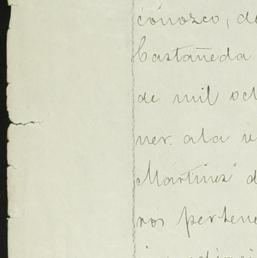 conozco, de
Castañeda
de mil och
ner. a la v
Martinez" d
ros pertene